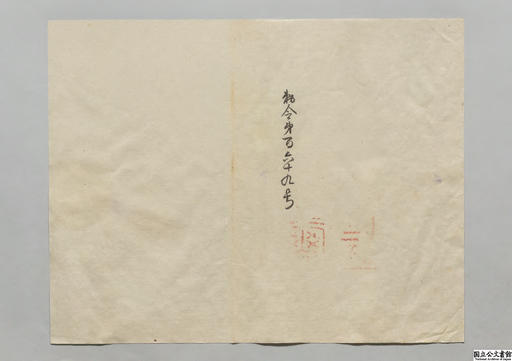 勅令第百六十九号
国立公文書館
National Archives of Japan